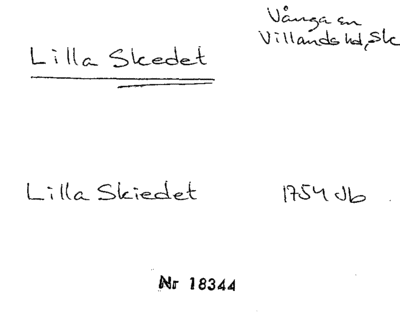 Vånga sn
Villands hd, Sk
Lilla Skedet
Lilla Skiedet 1754 Jb
Nr 18344